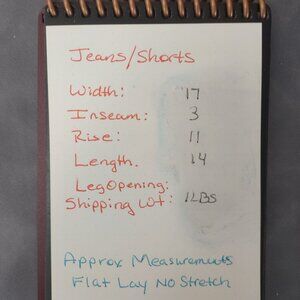 Jeans/Shorts
Width: 17
Inseam: 3
Rise: 11
Length. 14
Leg Opening:
Shipping Wt: 1LBS
Approx Measurements
Flat Lay No Stretch